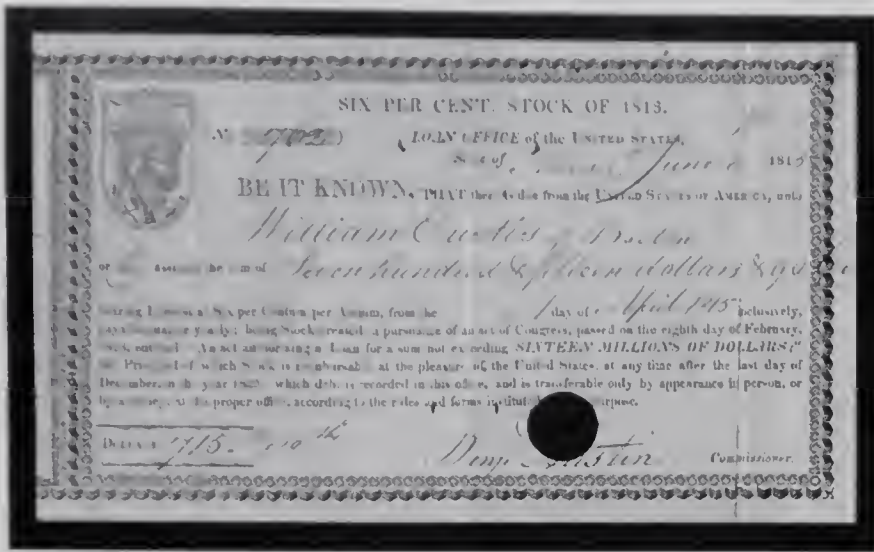 SIX PER CENT. STOCK OF 1813.
No 702) LOAN OFFICE of the UNITED STATES,
State of June 1815
BE IT KNOWN, THAT there is due from the UNITED STATES OF AMERICA, unto
William Curtis, Boston
or assigns the sum of Seven hundred & fifteen dollars &
bearing Interest at Six per Centum per Annum, from the 1 day of April 1815 inclusively,
payable quarter yearly; being Stock created in pursuance of an act of Congress, passed on the eighth day of February,
entitled "An act authorising a Loan for a sum not exceeding SIXTEEN MILLIONS OF DOLLARS;"
the Principal of which Stock is reimbursable at the pleasure of the United States, at any time after the last day of
December, in the year which debt is recorded in this office, and is transferable only by appearance in person, or
by attorney, at the proper office, according to the rules and forms instituted purpose.
715. Benj. Austin Commissioner.